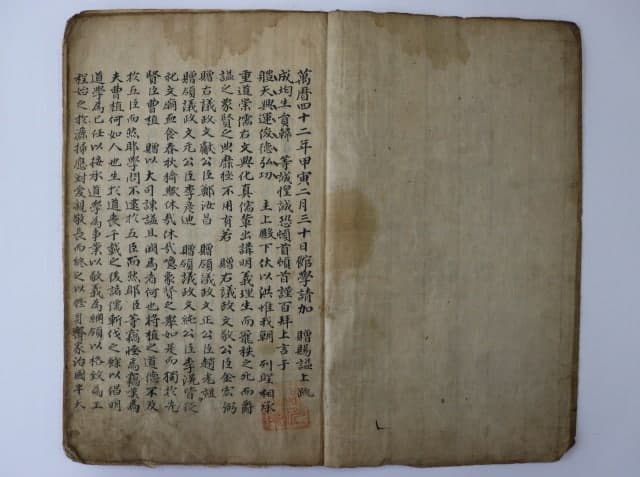 萬曆四十二年甲寅二月三十日館學請加 贈賜諡上疏
成均生貟韓 等誠惶誠恐頓首頓首謹百拜上言于
體天興運俊德弘功 主上殿下伏以洪惟我朝 列聖相承
重道崇儒右文興化真儒輩出講明義理生而寵秩之死而爵
諡之象賢之典靡極不用有若 贈右議政文敬公臣金宏弼
贈右議政文獻公臣鄭汝昌 贈領議政文正公臣趙光祖
贈領議政文元公臣李彦迪 贈領議政文純公臣李滉皆從
祀文廟血食春秋猗歟休哉休哉噫象賢之擧如是而獨於先
賢臣曺植 贈以大司諫諡且闕焉者何也將植之道德不及
於五臣而然耶學問不逮於五臣而然耶臣等竊怪焉竊焉
夫曺植何如人也生於道喪千載之後諸儒斬伐之餘以倡明
道學為己任以接承道學為事業以敬義為綱領以格致為工
程始之於灑掃應對愛親敬長而終之以修身齊家治國平天